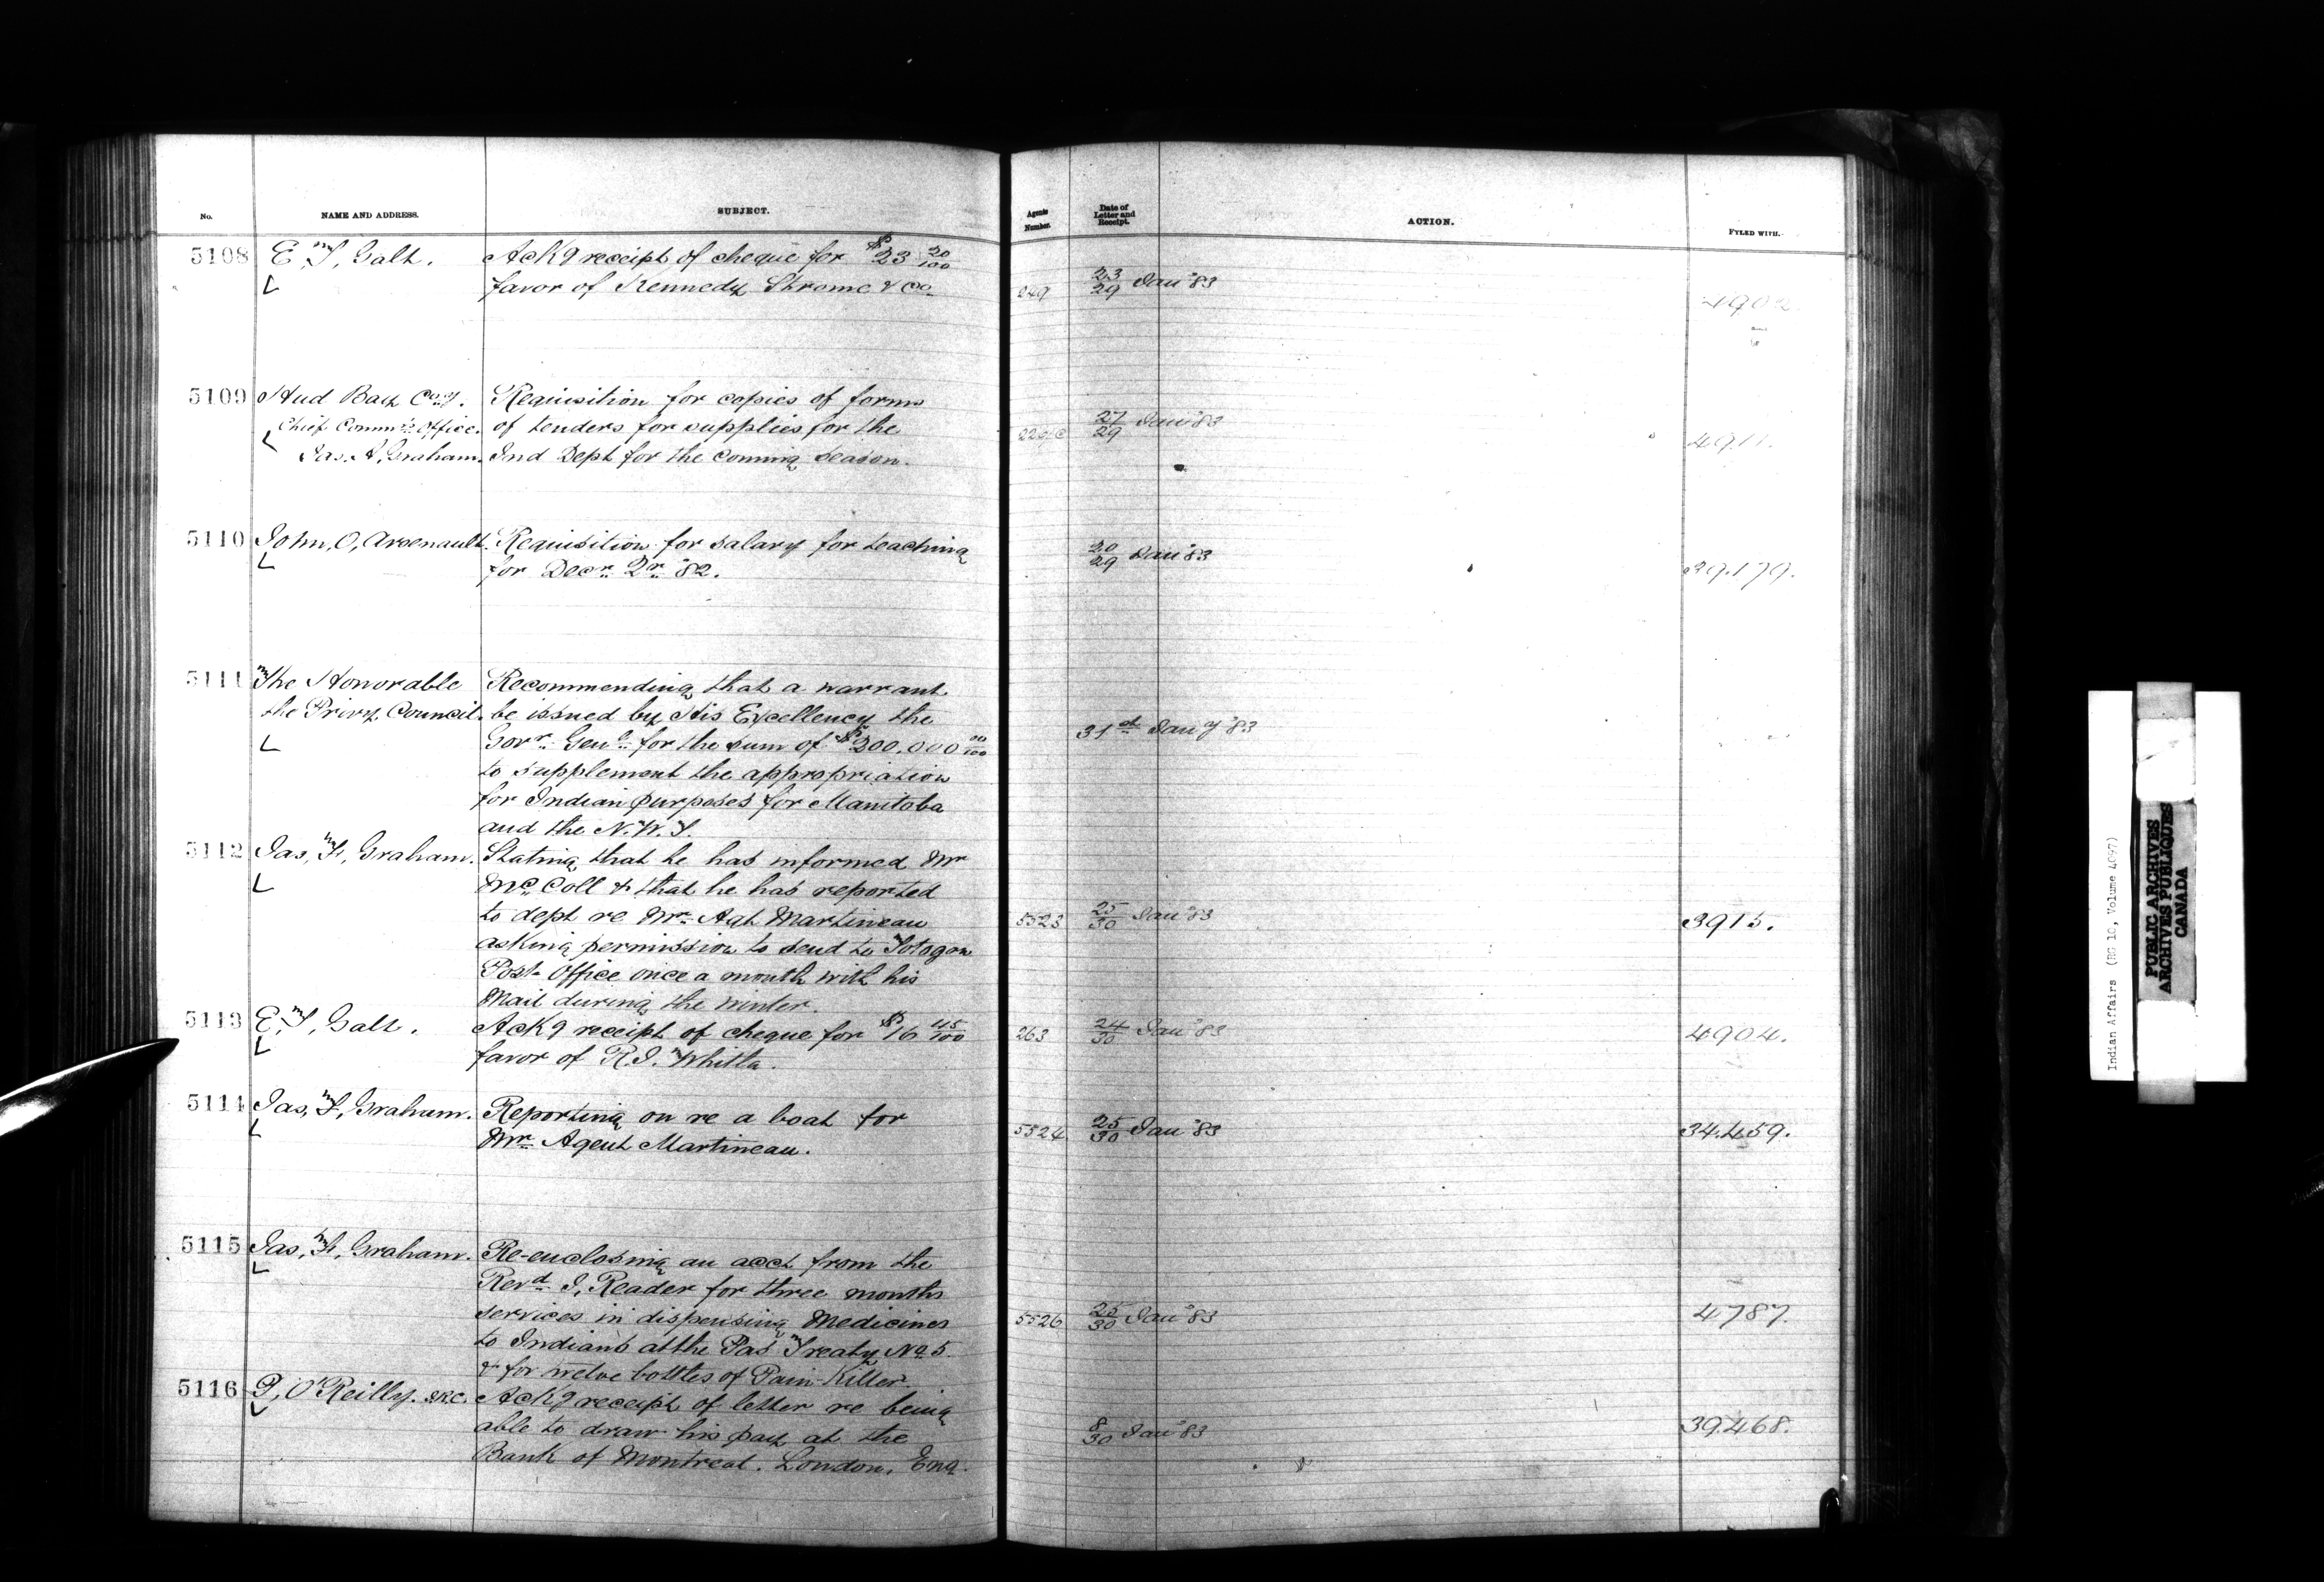 No. NAME AND ADDRESS. SUBJECT. Agents Number. Date of Letter and Receipt. ACTION. FYLED WITH.
5108 E, T, Galt. Ackg receipt of cheque for $23 20/100
favor of Kennedy Strome & Co 249 23/29 Jan'y 83 4902
5109 Hud Bay Co'y. Requisition for copies of forms
Chief Commrs Office. of tenders for supplies for the 27/29 Jan'y 83 4911.
Jas. A, Graham. Ind Dept for the coming season.
5110 John, O, Arsenault. Requisition for salary for teaching 20/29 Jan'y 83
for Decr. Qr. 82. 39.179.
5111 The Honorable Recommending that a warrant
the Privy Council. be issued by His Excellency the
Govr. Genl. for the sum of $200.000 00/100 31st Jan'y 83
to supplement the appropriation
for Indian purposes for Manitoba
and the N.W.T.
5112 Jas, F, Graham. Stating that he has informed Mr
McColl & that he has reported
to dept re Mr. Agt Martineau 5523 25/30 Jan'y 83 3915.
asking permission to send to Totogan
Post Office once a month with his
Mail during the winter.
5113 E, T, Galt. Ackg receipt of cheque for $16 45/100 263 24/30 Jan'y 83 4904.
favor of R.J. Whitla.
5114 Jas, F, Graham. Reporting on re a boat for
Mr. Agent Martineau. 5524 25/30 Jan'y 83 34.459.
5115 Jas, F, Graham. Re-enclosing an acct from the
Revd. J, Reader for three months
services in dispensing Medicines 5526 25/30 Jan'y 83 4787.
to Indians at the Pas Treaty No. 5
& for twelve bottles of Pain-Killer.
5116 P, O'Reilly. I.R.C. Ackg receipt of letter re being
able to draw his pay at the 8/30 Jan'y 83 39.468.
Bank of Montreal. London, Eng.
Indian Affairs (RG 10, Volume 4097)
PUBLIC ARCHIVES
ARCHIVES PUBLIQUES
CANADA